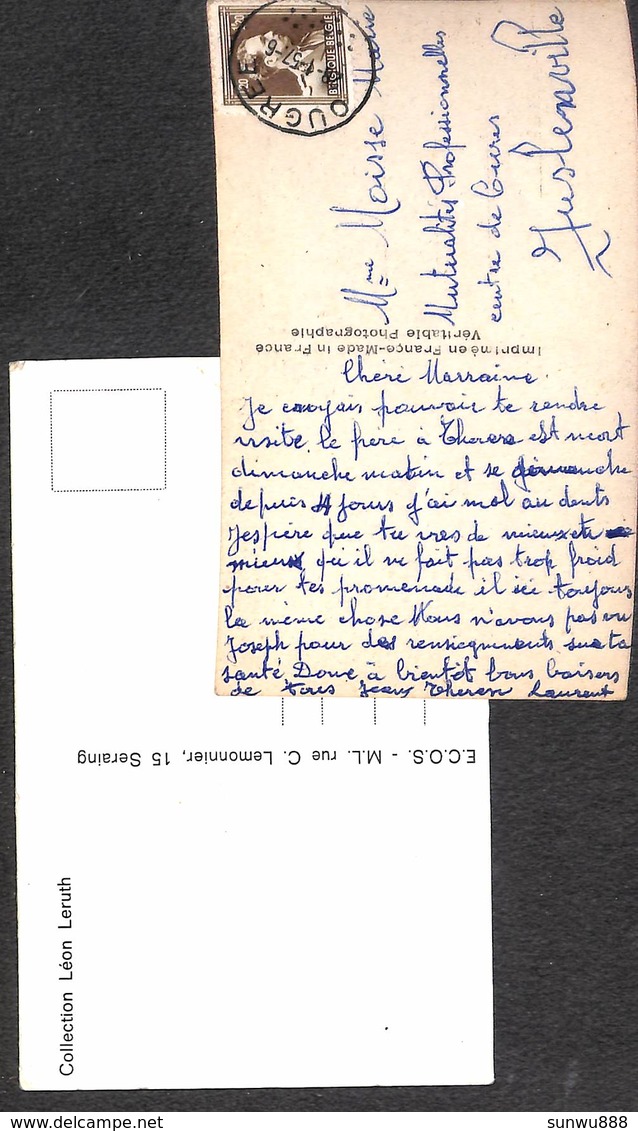 BELGIQUE-BELGIE
OUGREE
Mme Moisse Marie
Mutualités Professionnelles
centre de Cures
Juslenville
Imprimé en France-Made in France
Véritable Photographie
Chère Marraine
Je croyais pouvoir te rendre
visite le frère à Therese est mort
dimanche matin et se dimanche
depuis 4 jours j'ai mal au dents
J'espère que tu vas de mieux en
mieux qu'il ne fait pas trop froid
pour tes promenade il ici toujours
la même chose Nous n'avons pas vu
Joseph pour des renseignements sur ta
santé Donc à bientôt bons baisers
de tous Jean Therese Laurent
E.C.O.S. - M.L. rue C. Lemonnier, 15 Seraing
Collection Léon Leruth
sunwu888